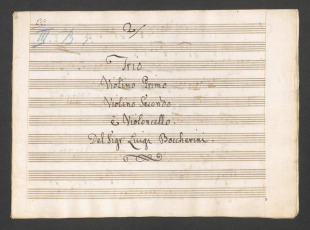 2/
III. B.
Trio
Violino Primo
Violino Secondo
è Violoncello.
Del Sigr Luigi Boccherini.